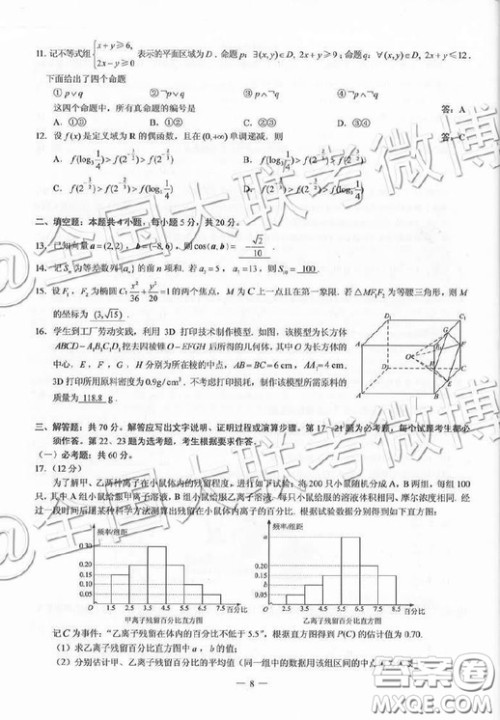 11. 记不等式组{x+y⩾6, 2x-y⩾0 表示的平面区域为D. 命题p: ∃(x,y)∈D, 2x+y⩾9; 命题q: ∀(x,y)∈D, 2x+y⩽12.
下面给出了四个命题
① p∨q ② ¬p∨q ③ p∧¬q ④ ¬p∧¬q
这四个命题中, 所有真命题的编号是 答: A
A. ①③ B. ①② C. ②③ D. ③④
12. 设f(x)是定义域为R的偶函数, 且在(0,+∞)单调递减, 则 答: C
A. f(log₃ 1/4)>f(2^(-3/2))>f(2^(-2/3)) B. f(log₃ 1/4)>f(2^(-2/3))>f(2^(-3/2))
C. f(2^(-3/2))>f(2^(-2/3))>f(log₃ 1/4) D. f(2^(-2/3))>f(2^(-3/2))>f(log₃ 1/4)
二、填空题: 本题共4小题, 每小题5分, 共20分.
13. 已知向量a=(2,2), b=(-8,6), 则cos⟨a,b⟩= -√2/10 .
14. 记Sₙ为等差数列{aₙ}的前n项和. 若a₃=5, a₇=13, 则S₁₀= 100 .
15. 设F₁, F₂为椭圆C: x²/36+y²/20=1的两个焦点, M为C上一点且在第一象限. 若△MF₁F₂为等腰三角形, 则M
的坐标为 (3,√15) .
16. 学生到工厂劳动实践, 利用3D打印技术制作模型. 如图, 该模型为长方体
ABCD-A₁B₁C₁D₁挖去四棱锥O-EFGH后所得的几何体, 其中O为长方体的
中心, E, F, G, H分别为所在棱的中点, AB=BC=6cm, AA₁=4cm.
3D打印所用原料密度为0.9g/cm³. 不考虑打印损耗, 制作该模型所需原料的
质量为 118.8 g.
三、解答题: 共70分. 解答应写出文字说明、证明过程或演算步骤. 第17~21题为必考题, 每个试题考生都必
须作答. 第22、23题为选考题, 考生根据要求作答.
(一)必考题: 共60分
17. (12分)
为了解甲、乙两种离子在小鼠体内的残留程度, 进行如下试验: 将200只小鼠随机分成A, B两组, 每组100
只, 其中A组小鼠给服甲离子溶液, B组小鼠给服乙离子溶液. 每只小鼠给服的溶液体积相同、摩尔浓度相同. 经
过一段时间后用某种科学方法测算出残留在小鼠体内离子的百分比. 根据试验数据分别得到如下直方图:
频率/组距
0.30
0.20
0.15
0.10
0.05
O 1.5 2.5 3.5 4.5 5.5 6.5 7.5 百分比
甲离子残留百分比直方图
频率/组距
a
0.20
0.15
b
0.05
O 1.5 2.5 3.5 4.5 5.5 6.5 7.5 8.5 百分比
乙离子残留百分比直方图
记C为事件: "乙离子残留在体内的百分比不低于5.5", 根据直方图得到P(C)的估计值为0.70.
(1)求乙离子残留百分比直方图中a, b的值;
(2)分别估计甲、乙离子残留百分比的平均值(同一组中的数据用该组区间的中
— 8 —
@全国大联考微博
@全国大联考微博
答案圈
MXQE.COM